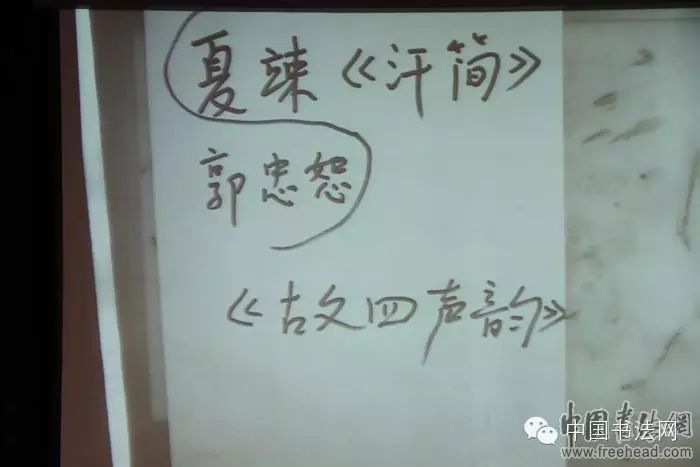 夏竦《汗简》
郭忠恕
《古文四声韵》
中国书法网
中国书法网
www.freehead.com